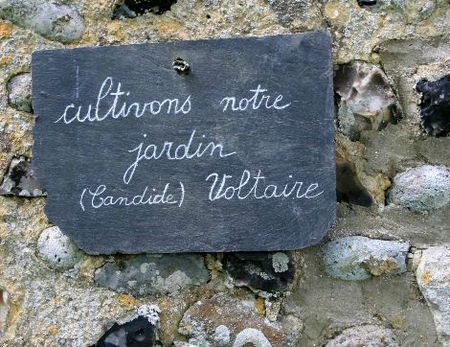 cultivons notre
jardin
(Candide) Voltaire